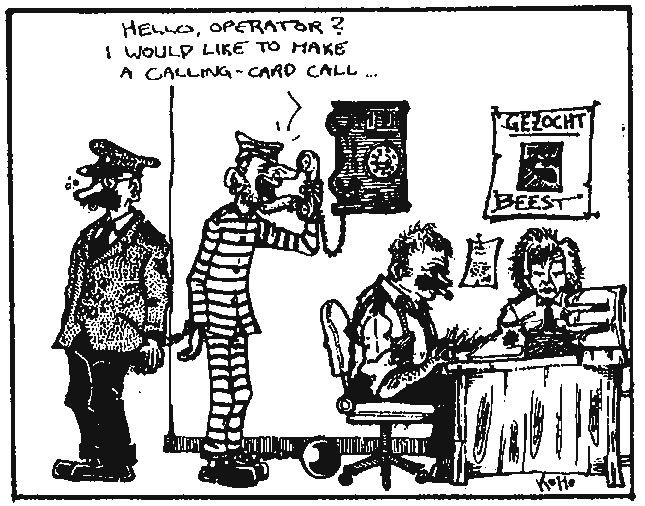 HELLO, OPERATOR?
I WOULD LIKE TO MAKE
A CALLING-CARD CALL ...
GEZOCHT
BEEST
KoHo